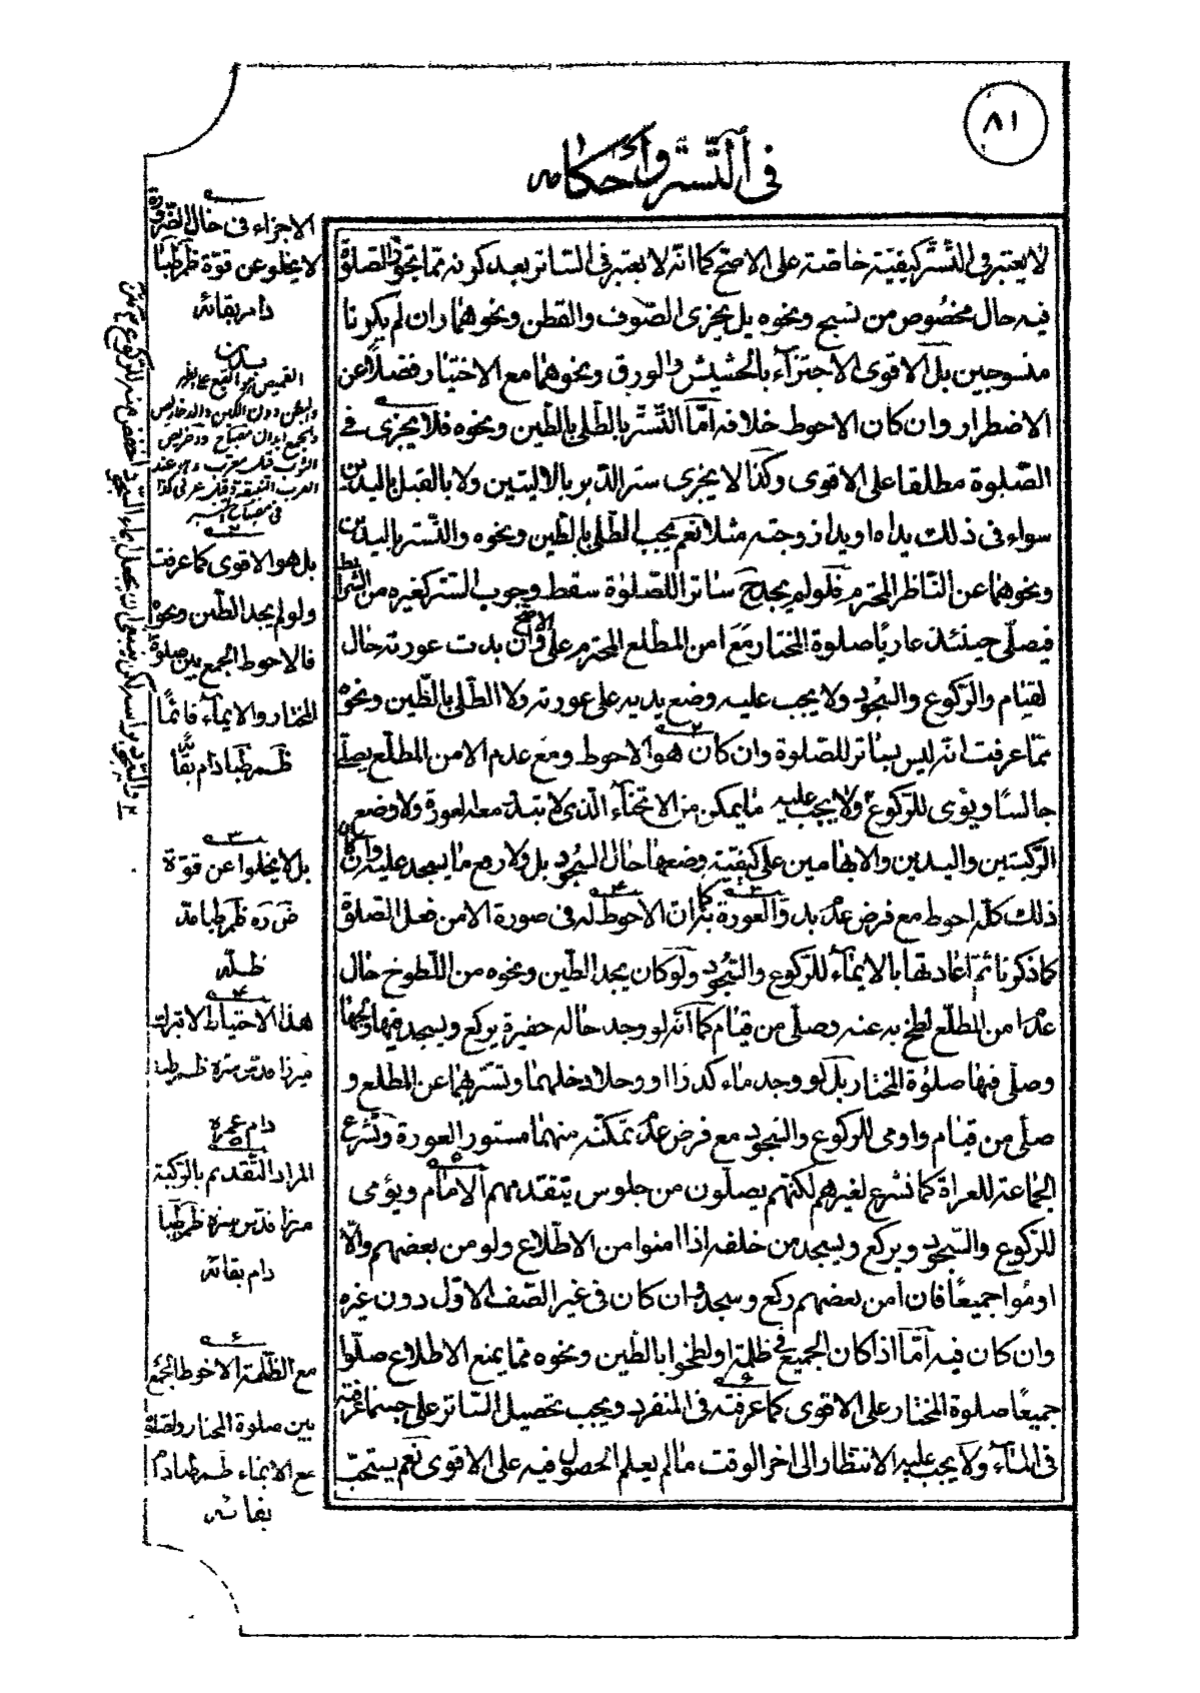 ٨١
في التستر وأحكامه
لا يعتبر في التستر كيفية خاصة على الاصح كما انه لا يعتبر في الساتر بعد كونه مما تجوز الصلوة
فيه حال مخصوص من نسج ونحوه بل يجزى الصوف والقطن ونحوهما وان لم يكونا
منسوجين بل الاقوى الاجتزاء بالحشيش والورق ونحوهما مع الاختيار فضلا عن
الاضطرار وان كان الاحوط خلافه اما التستر بالطلى بالطين ونحوه فلا يجزى في
الصلوة مطلقا على الاقوى وكذا لا يجزى ستر الدبر بالاليتين ولا بالقبل باليدين
سواء في ذلك يداه او يدا زوجته مثلا نعم يجب الطلى بالطين ونحوه والتستر باليدين
ونحوهما عن الناظر المحترم فلو لم يجد ح ساتر اللصلوة سقط وجوب الستر كغيره من الشرائط
فيصلي حينئذ عاريا صلوة المختار مع امن المطلع المحترم على الاصح وان بدت عورته حال
لقيام والركوع والسجود ولا يجب عليه وضع يديه على عورته ولا الطلى بالطين ونحوه
مما عرفت انه ليس بساتر للصلوة وان كان هو الاحوط ومع عدم الامن المطلع يصلي
جالسا ويؤمى للركوع ولا يجب عليه ما يمكن من الانحناء الذي لا تبد معه العورة ولا وضع
الركبتين واليدين والابهامين على كيفية وضعها حال السجود بل ولا رفع ما يسجد عليه وان كان
ذلك كله احوط مع فرض عدم بدو العورة كما ان الاحوط له في صورة الامن فعل الصلوة
كما ذكرنا ثم اعادتها بالايماء للركوع والسجود ولو كان يجد الطين ونحوه من اللطوخ حال
عدم امن المطلع لطخ به عنه وصلى من قيام كما انه لو وجد حاله حفيرة يركع ويسجد فيها ولجها
وصلى فيها صلوة المختار بل لو وجد ماء كدرا او وحلا دخلهما وتستر بهما عن المطلع و
صلى من قيام واومى للركوع والسجود مع فرض عدم تمكنه منهما مستور العورة وتشرع
الجماعة للعراة كما تشرع لغيرهم لكنهم يصلون من جلوس يتقدمهم الامام ويؤمى
للركوع والسجود ويركع ويسجد من خلفه اذا امنوا من الاطلاع ولو من بعضهم والا
اومؤا جميعا فان امن بعضهم ركع وسجد وان كان في غير الصف الاول دون غيره
وان كان فيه اما اذا كان الجميع في ظلمة او لطخوا بالطين ونحوه مما يمنع الاطلاع صلوا
جميعا صلوة المختار على الاقوى كما عرفته في المنفرد ويجب تحصيل الساتر على حسبما عرفته
في الماء ولا يجب عليه الانتظار الى اخر الوقت ما لم يعلم الحصول فيه على الاقوى نعم يستحب
الاجزاء في حال الضرورة
لا يخلو عن قوة ظم طبا
دام بقائه
بدن
القميص
بل هو الاقوى كما عرفت
ولو لم يجد الطين ونحوه
فالاحوط الجمع بين صلوة
المختار والايماء قائما
ظم طبا دام بقاه
٣
بل لا يخلوا عن قوة
ظم طبا مد
ظله
٤
هذا الاحتياط لا يترك
ميرزا قدس سره ظم طبا
دام عمره
٥
المراد التقدم بالركبة
ميرزا قدس سره ظم طبا
دام بقائه
٦
مع الظلمة الاحوط الجمع
بين صلوة المختار والصلوة
مع الايماء ظم طبا دام
بقائه